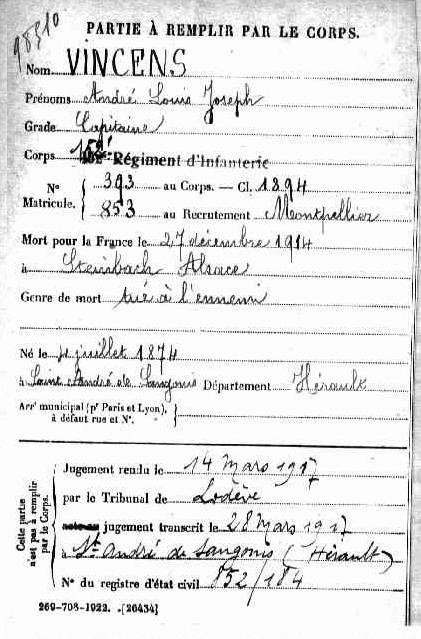 98510
PARTIE À REMPLIR PAR LE CORPS.
Nom VINCENS
Prénoms André Louis Joseph
Grade Capitaine
Corps 152è Régiment d'Infanterie
N° Matricule. { 393 au Corps. — Cl. 1894
853 au Recrutement Montpellier
Mort pour la France le 27 décembre 1914
à Steinbach Alsace
Genre de mort tué à l'ennemi
Né le juillet 1874
à Saint André de Sangonis Département Hérault
Arr^t municipal (p^r Paris et Lyon),
à défaut rue et N°.
Cette partie n'est pas à remplir par le Corps.
Jugement rendu le 14 Mars 1917
par le Tribunal de Lodève
jugement transcrit le 28 Mars 1917
à St André de Sangonis (Hérault)
N° du registre d'état civil 852/184
269-708-1922. [26434]